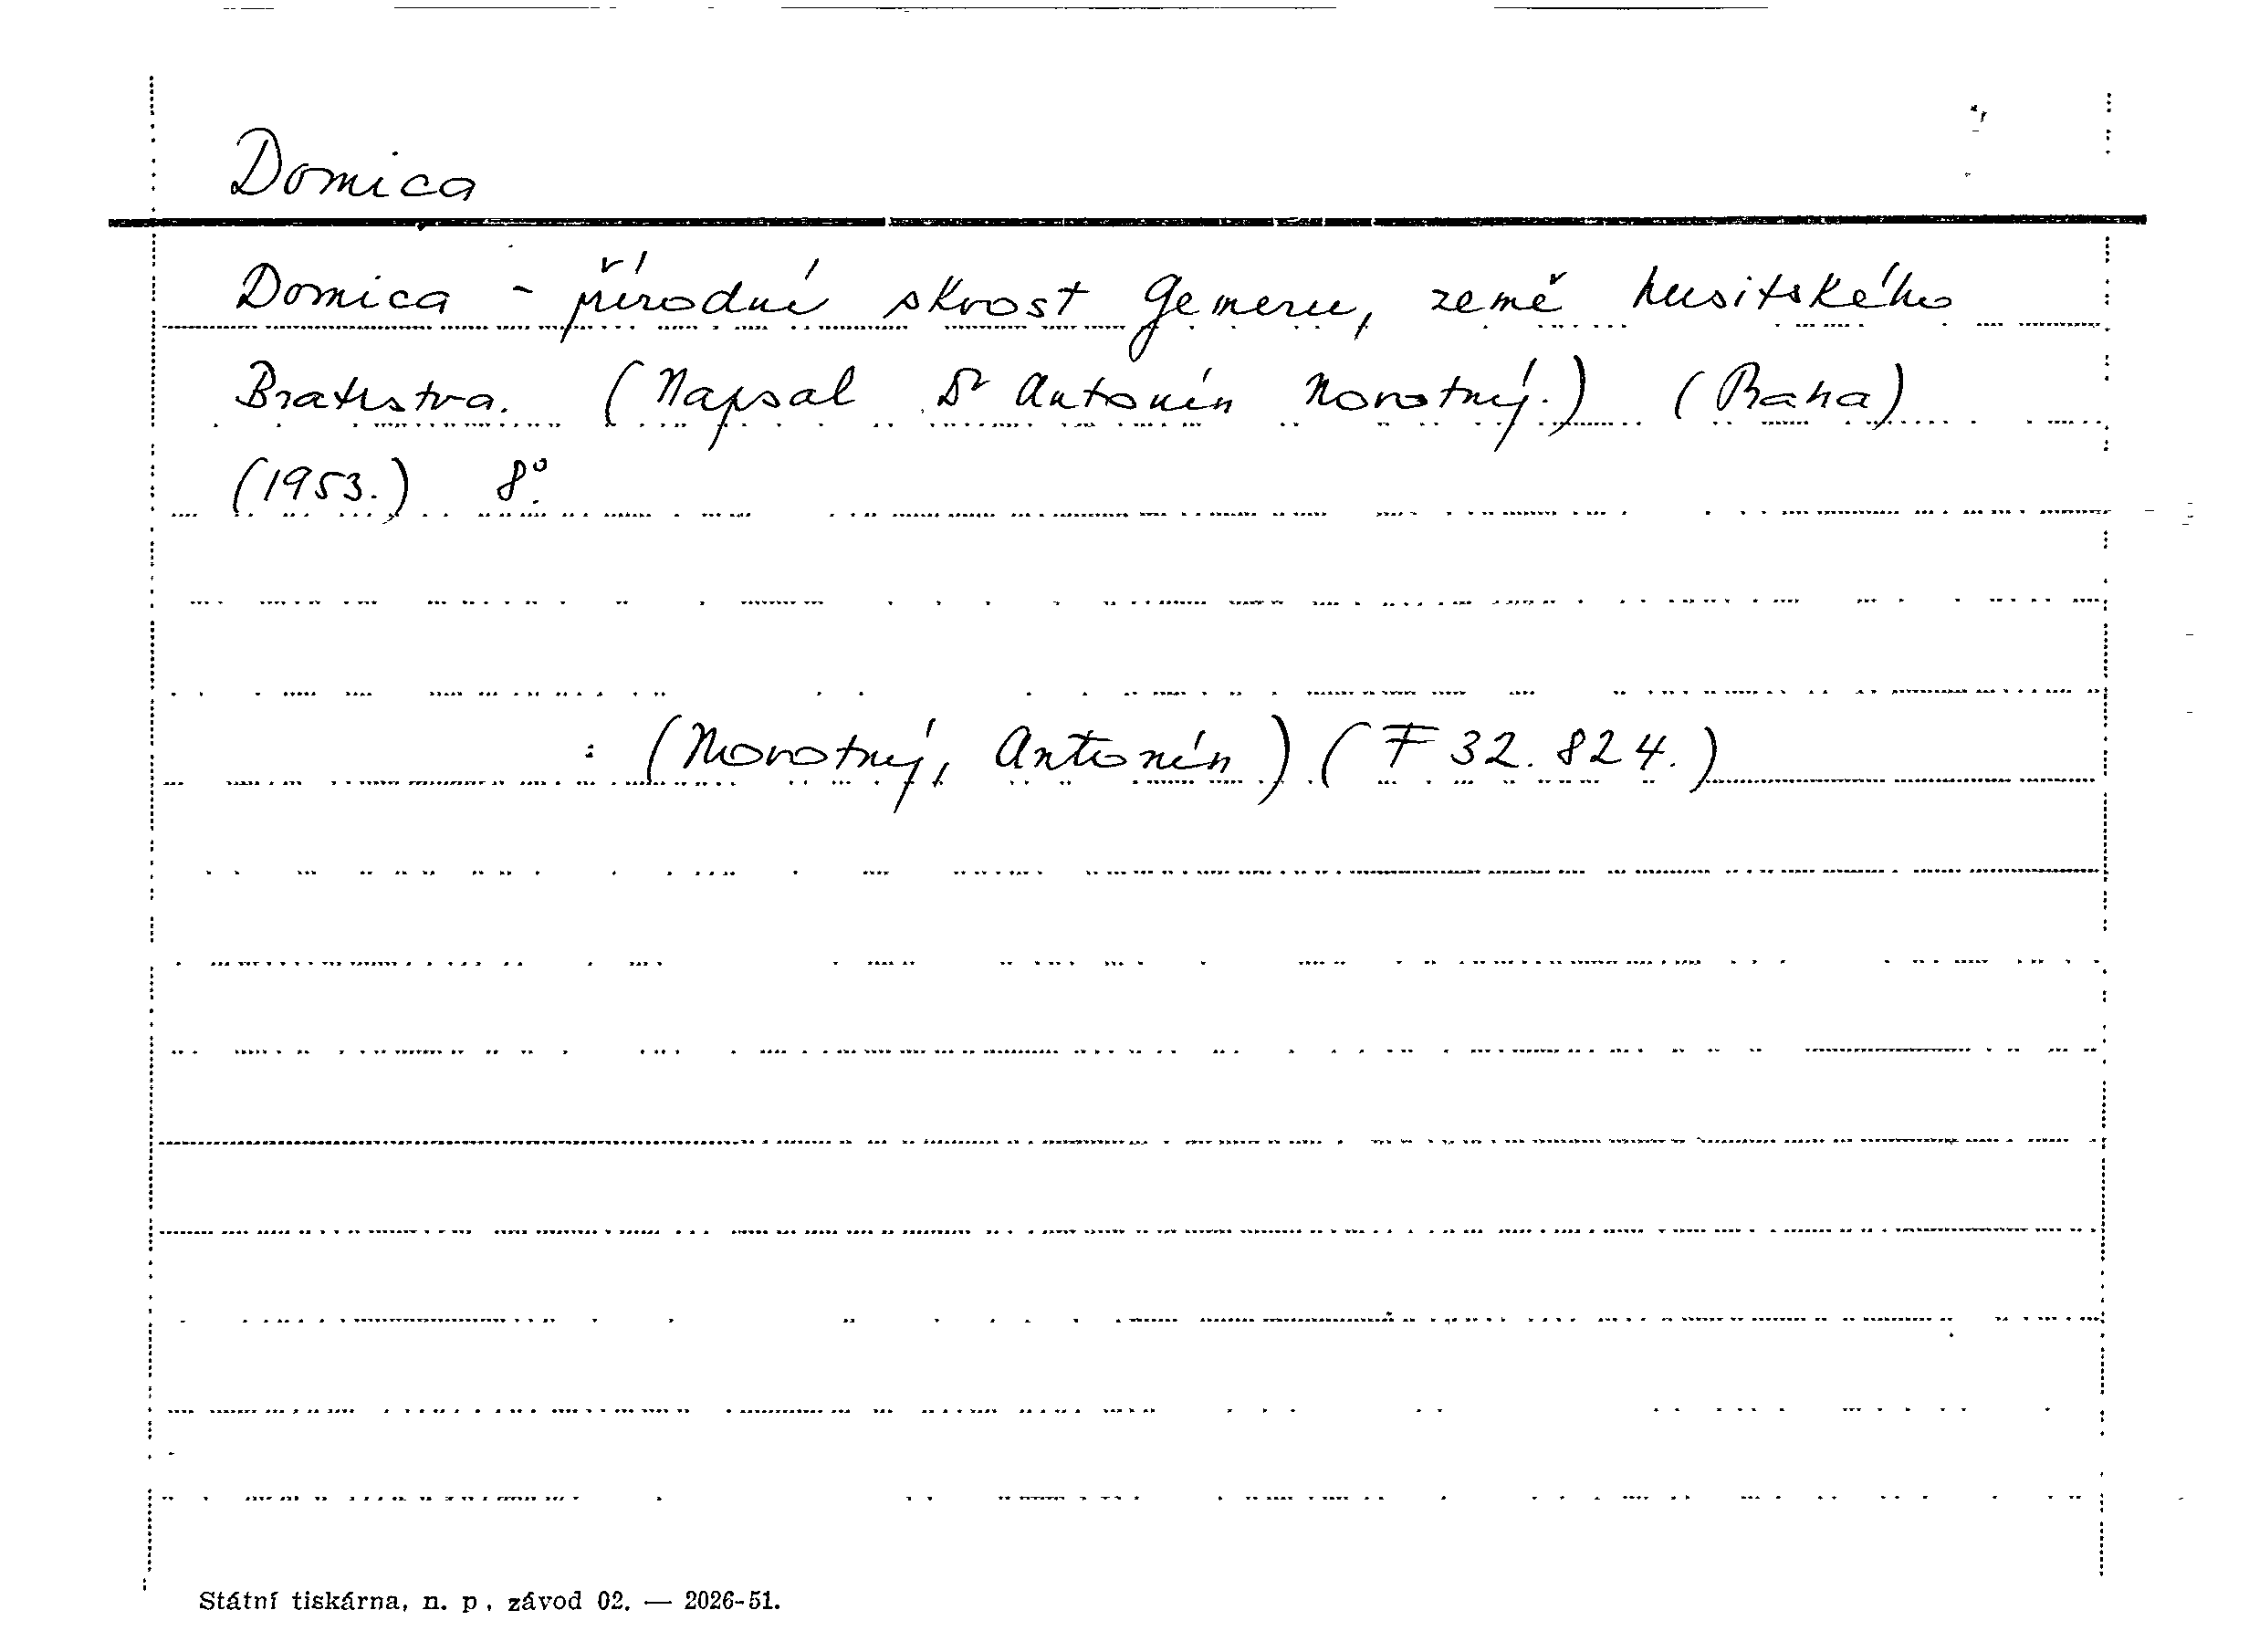 Domica
Domica - přírodní skvost Gemeru, země husitského
Bratrstva. (Napsal Dr Antonín Novotný.) (Praha)
(1953.) 8°.
: (Novotný, Antonín) (F 32.824.)
Státní tiskárna, n. p., závod 02. — 2026-51.